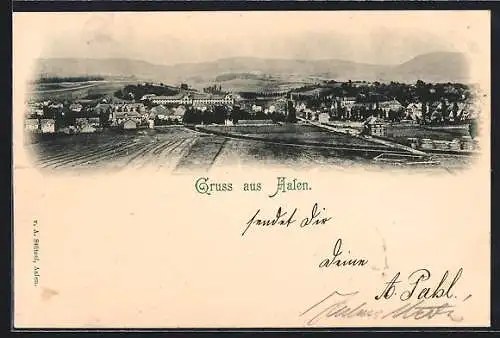 Gruss aus Aalen.
v. A. Stützel, Aalen.
sendet Dir
Deine
A. Pahl.